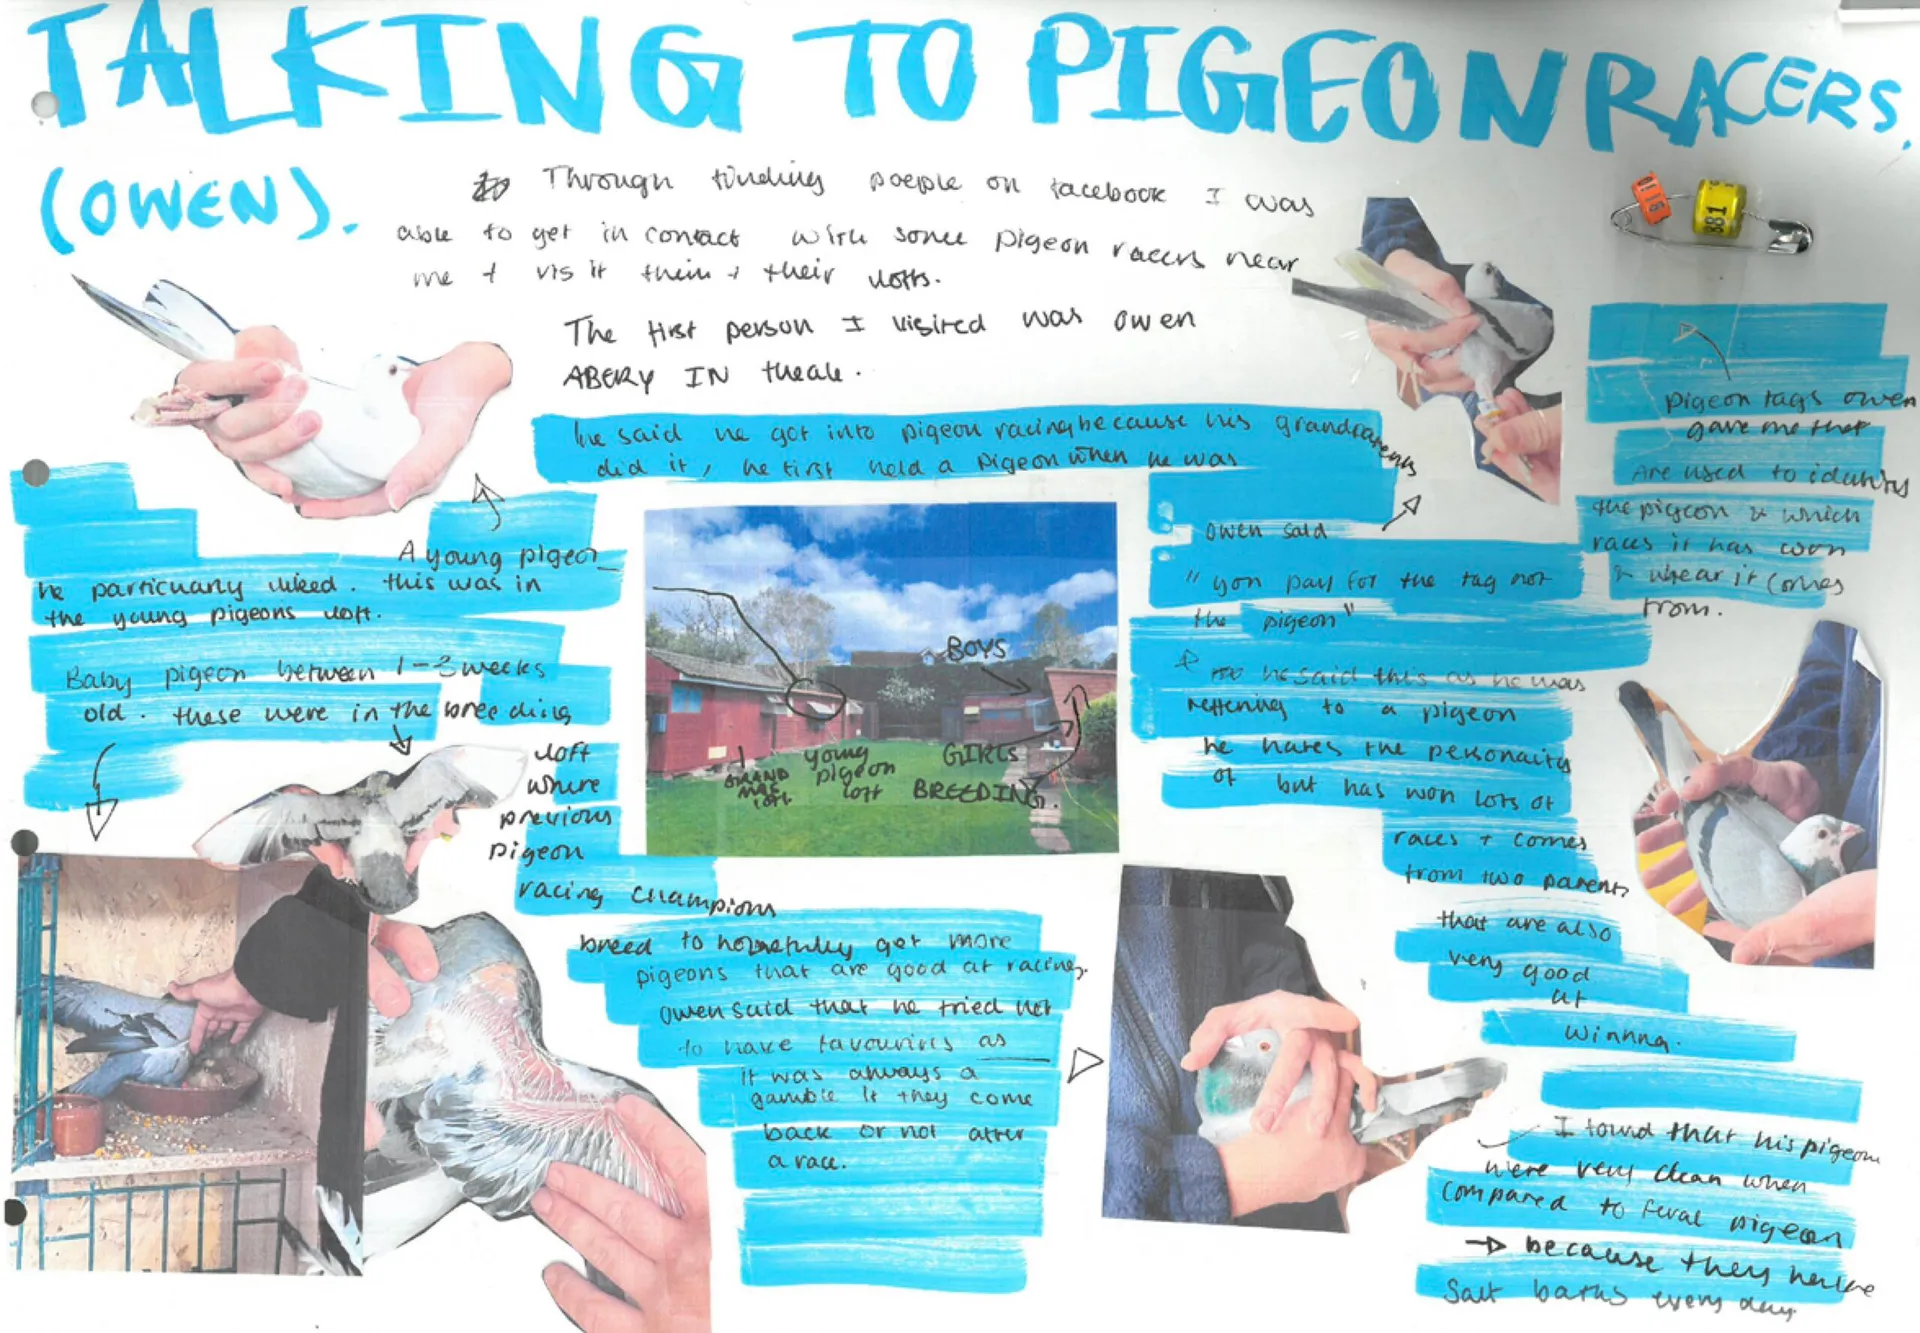 TALKING TO PIGEON RACERS.
(OWEN).
Through finding poeple on facebook I was
able to get in contact with some pigeon racers near
me + visit them + their lofts.
The first person I visited was owen
ABERY IN theale.
he said he got into pigeon racing because his grandparents
did it, he first held a pigeon when he was
A young pigeon
he particuarly liked. this was in
the young pigeons loft.
Baby pigeon between 1-3 weeks
old. these were in the breeding
loft
where
previous
pigeon
racing champions
breed to get more
pigeons that are good at racing.
owen said that he tried not
to have favourites as
it was always a
gamble if they come
back or not after
a race.
BOYS
GIRLS
BREEDING.
young
pigeon
loft
loft
881
pigeon tags owen
gave me that
are used to identify
the pigeon & which
races it has won
& whear it comes
from.
owen said
"you pay for the tag not
the pigeon"
he said this as he was
reffering to a pigeon
he hates the personality
of but has won lots of
races + comes
from two parents
that are also
very good
at
winnng.
I found that his pigeons
were very clean when
compared to feral pigeons
→ because they have
Salt baths every day